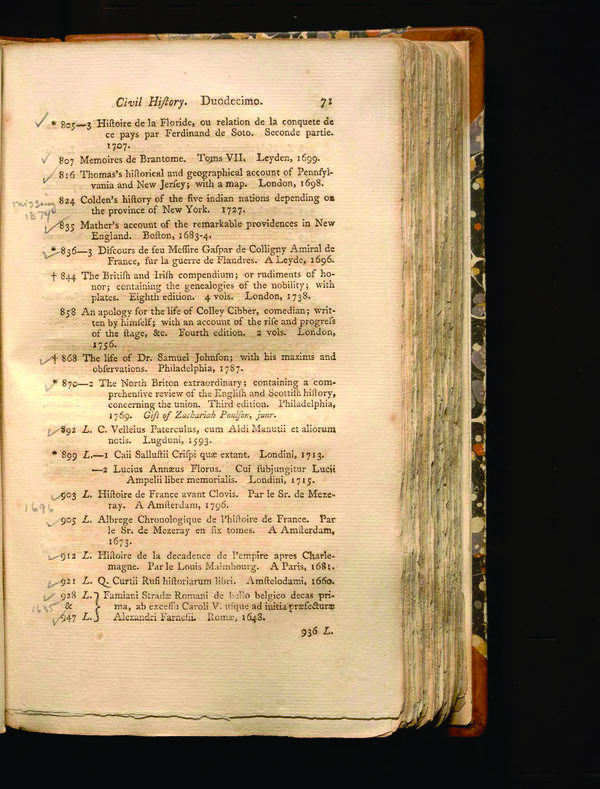 Civil Hiſtory. Duodecimo. 71
* 805—3 Hiſtoire de la Floride, ou relation de la conquete de
ce pays par Ferdinand de Soto. Seconde partie.
1707.
807 Memoires de Brantome. Toms VII. Leyden, 1699.
816 Thomas's hiſtorical and geographical account of Pennſyl-
vania and New Jerſey; with a map. London, 1698.
missing
1874
824 Colden's hiſtory of the five indian nations depending on
the province of New York. 1727.
835 Mather's account of the remarkable providences in New
England. Boſton, 1683-4.
* 836—3 Diſcours de feu Meſſire Gaſpar de Colligny Amiral de
France, ſur la guerre de Flandres. A Leyde, 1696.
† 844 The Britiſh and Iriſh compendium; or rudiments of ho-
nor; containing the genealogies of the nobility; with
plates. Eighth edition. 4 vols. London, 1738.
858 An apology for the life of Colley Cibber, comedian; writ-
ten by himſelf; with an account of the riſe and progreſs
of the ſtage, &c. Fourth edition. 2 vols. London,
1756.
† 868 The life of Dr. Samuel Johnſon; with his maxims and
obſervations. Philadelphia, 1787.
* 870—2 The North Briton extraordinary; containing a com-
prehenſive review of the Engliſh and Scottiſh hiſtory,
concerning the union. Third edition. Philadelphia,
1769. Gift of Zachariah Poulſon, junr.
892 L. C. Velleius Paterculus, cum Aldi Manutii et aliorum
notis. Lugduni, 1593.
* 899 L.—1 Caii Salluſtii Criſpi quæ extant. Londini, 1713.
—2 Lucius Annæus Florus. Cui ſubjungitur Lucii
Ampelii liber memorialis. Londini, 1715.
903 L. Hiſtoire de France avant Clovis. Par le Sr. de Meze-
ray. A Amſterdam, 1796.
1696
905 L. Albrege Chronologique de l'hiſtoire de France. Par
le Sr. de Mezeray en ſix tomes. A Amſterdam,
1673.
912 L. Hiſtoire de la decadence de l'empire apres Charle-
magne. Par le Louis Maimbourg. A Paris, 1681.
921 L. Q. Curtii Ruſi hiſtoriarum libri. Amſtelodami, 1660.
928 L. Famiani Stradæ Romani de bello belgico decas pri-
& ma, ab exceſſu Caroli V. uſque ad initia præfecturæ
947 L. Alexandri Farneſii. Romæ, 1648.
936 L.